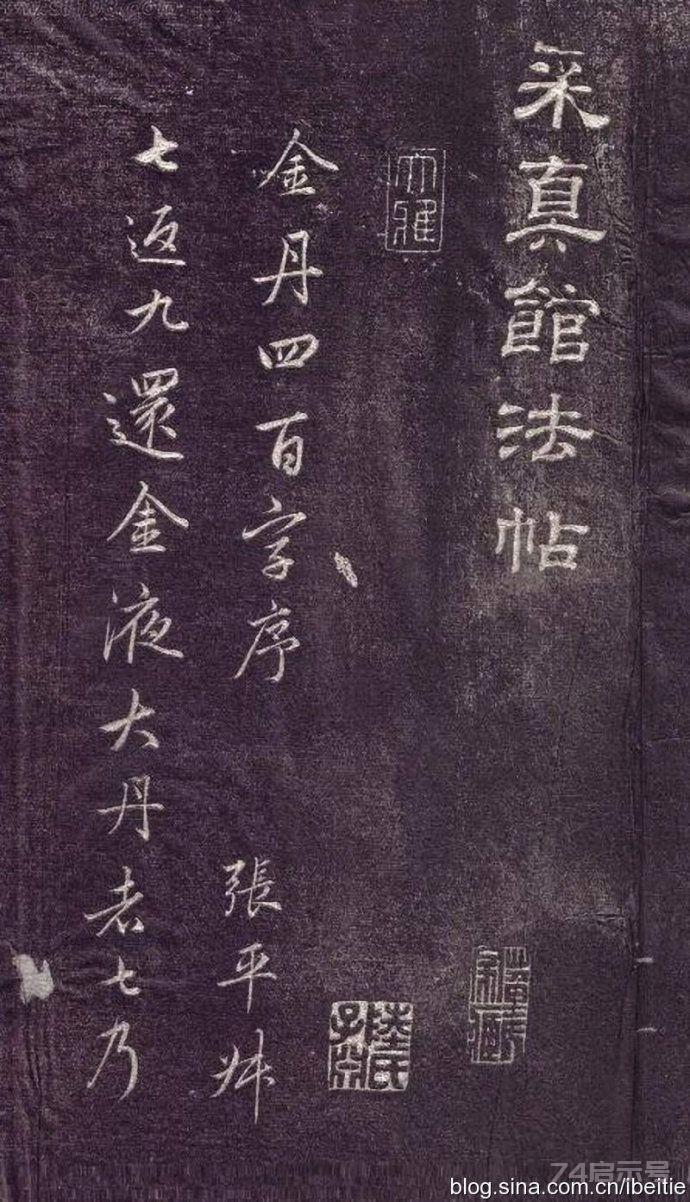 采真館法帖
大雅
金丹四百字序
張平叔
陸氏子
七返九還金液大丹者七乃
74启示号
blog.sina.com.cn/ibeitie